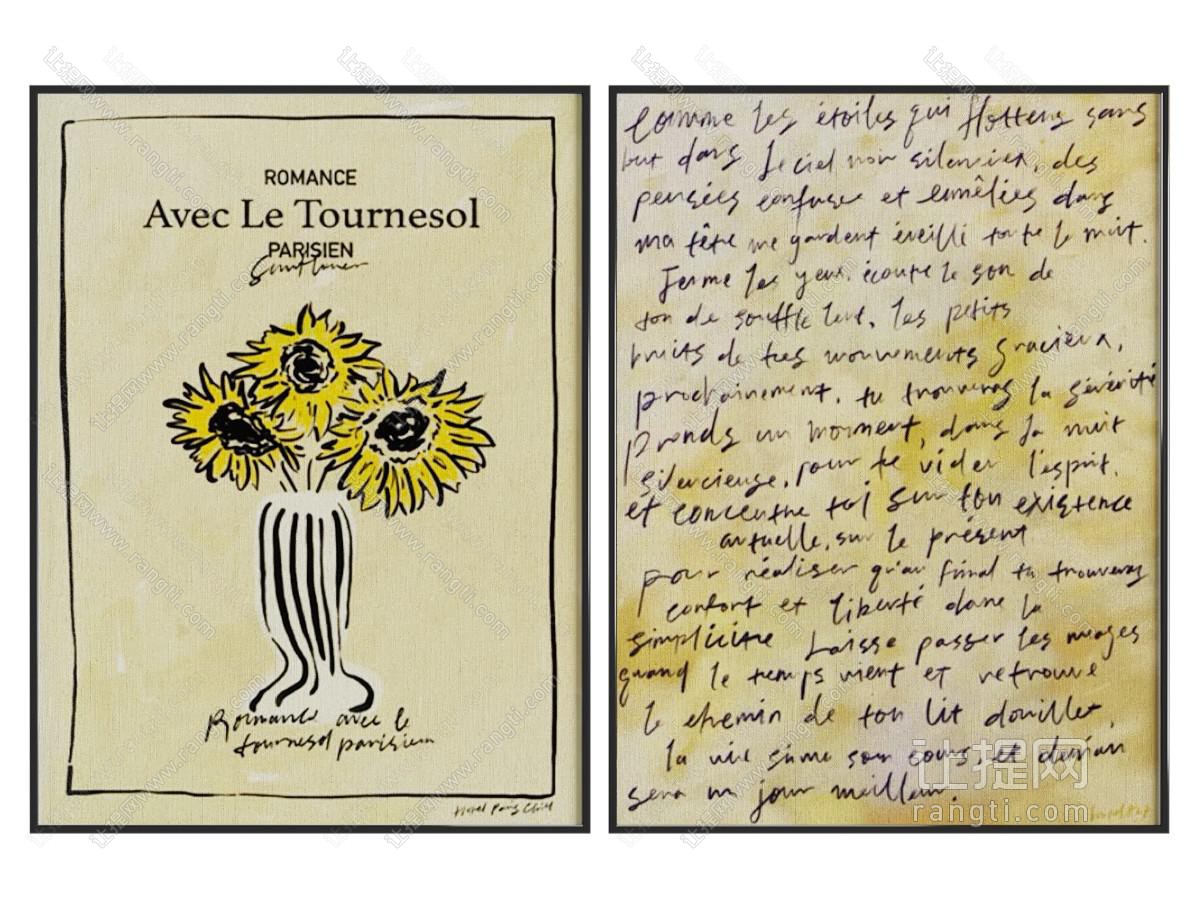 ROMANCE
Avec Le Tournesol
PARISIEN
Sunflower
Romance avec le
tournesol parisien
Comme les étoiles qui flottent sans
but dans le ciel noir silencieux, des
pensées confuses et emmêlées dans
ma tête me gardent éveillé toute la nuit.
Ferme les yeux, écoute le son de
ton de souffle lent, les petits
bruits de tes mouvements gracieux,
prochainement, tu trouveras la sévérité
prends un moment, dans la nuit
silencieuse, pour te vider l'esprit.
et concentre toi sur ton existence
actuelle, sur le présent
pour réaliser qu'au final tu trouveras
confort et liberté dans la
simplicité Laisse passer les nuages
quand le temps vient et retrouve
le chemin de ton lit douillet,
la vie suive son cours, et demain
sera un jour meilleur.
让提网
rangti.com